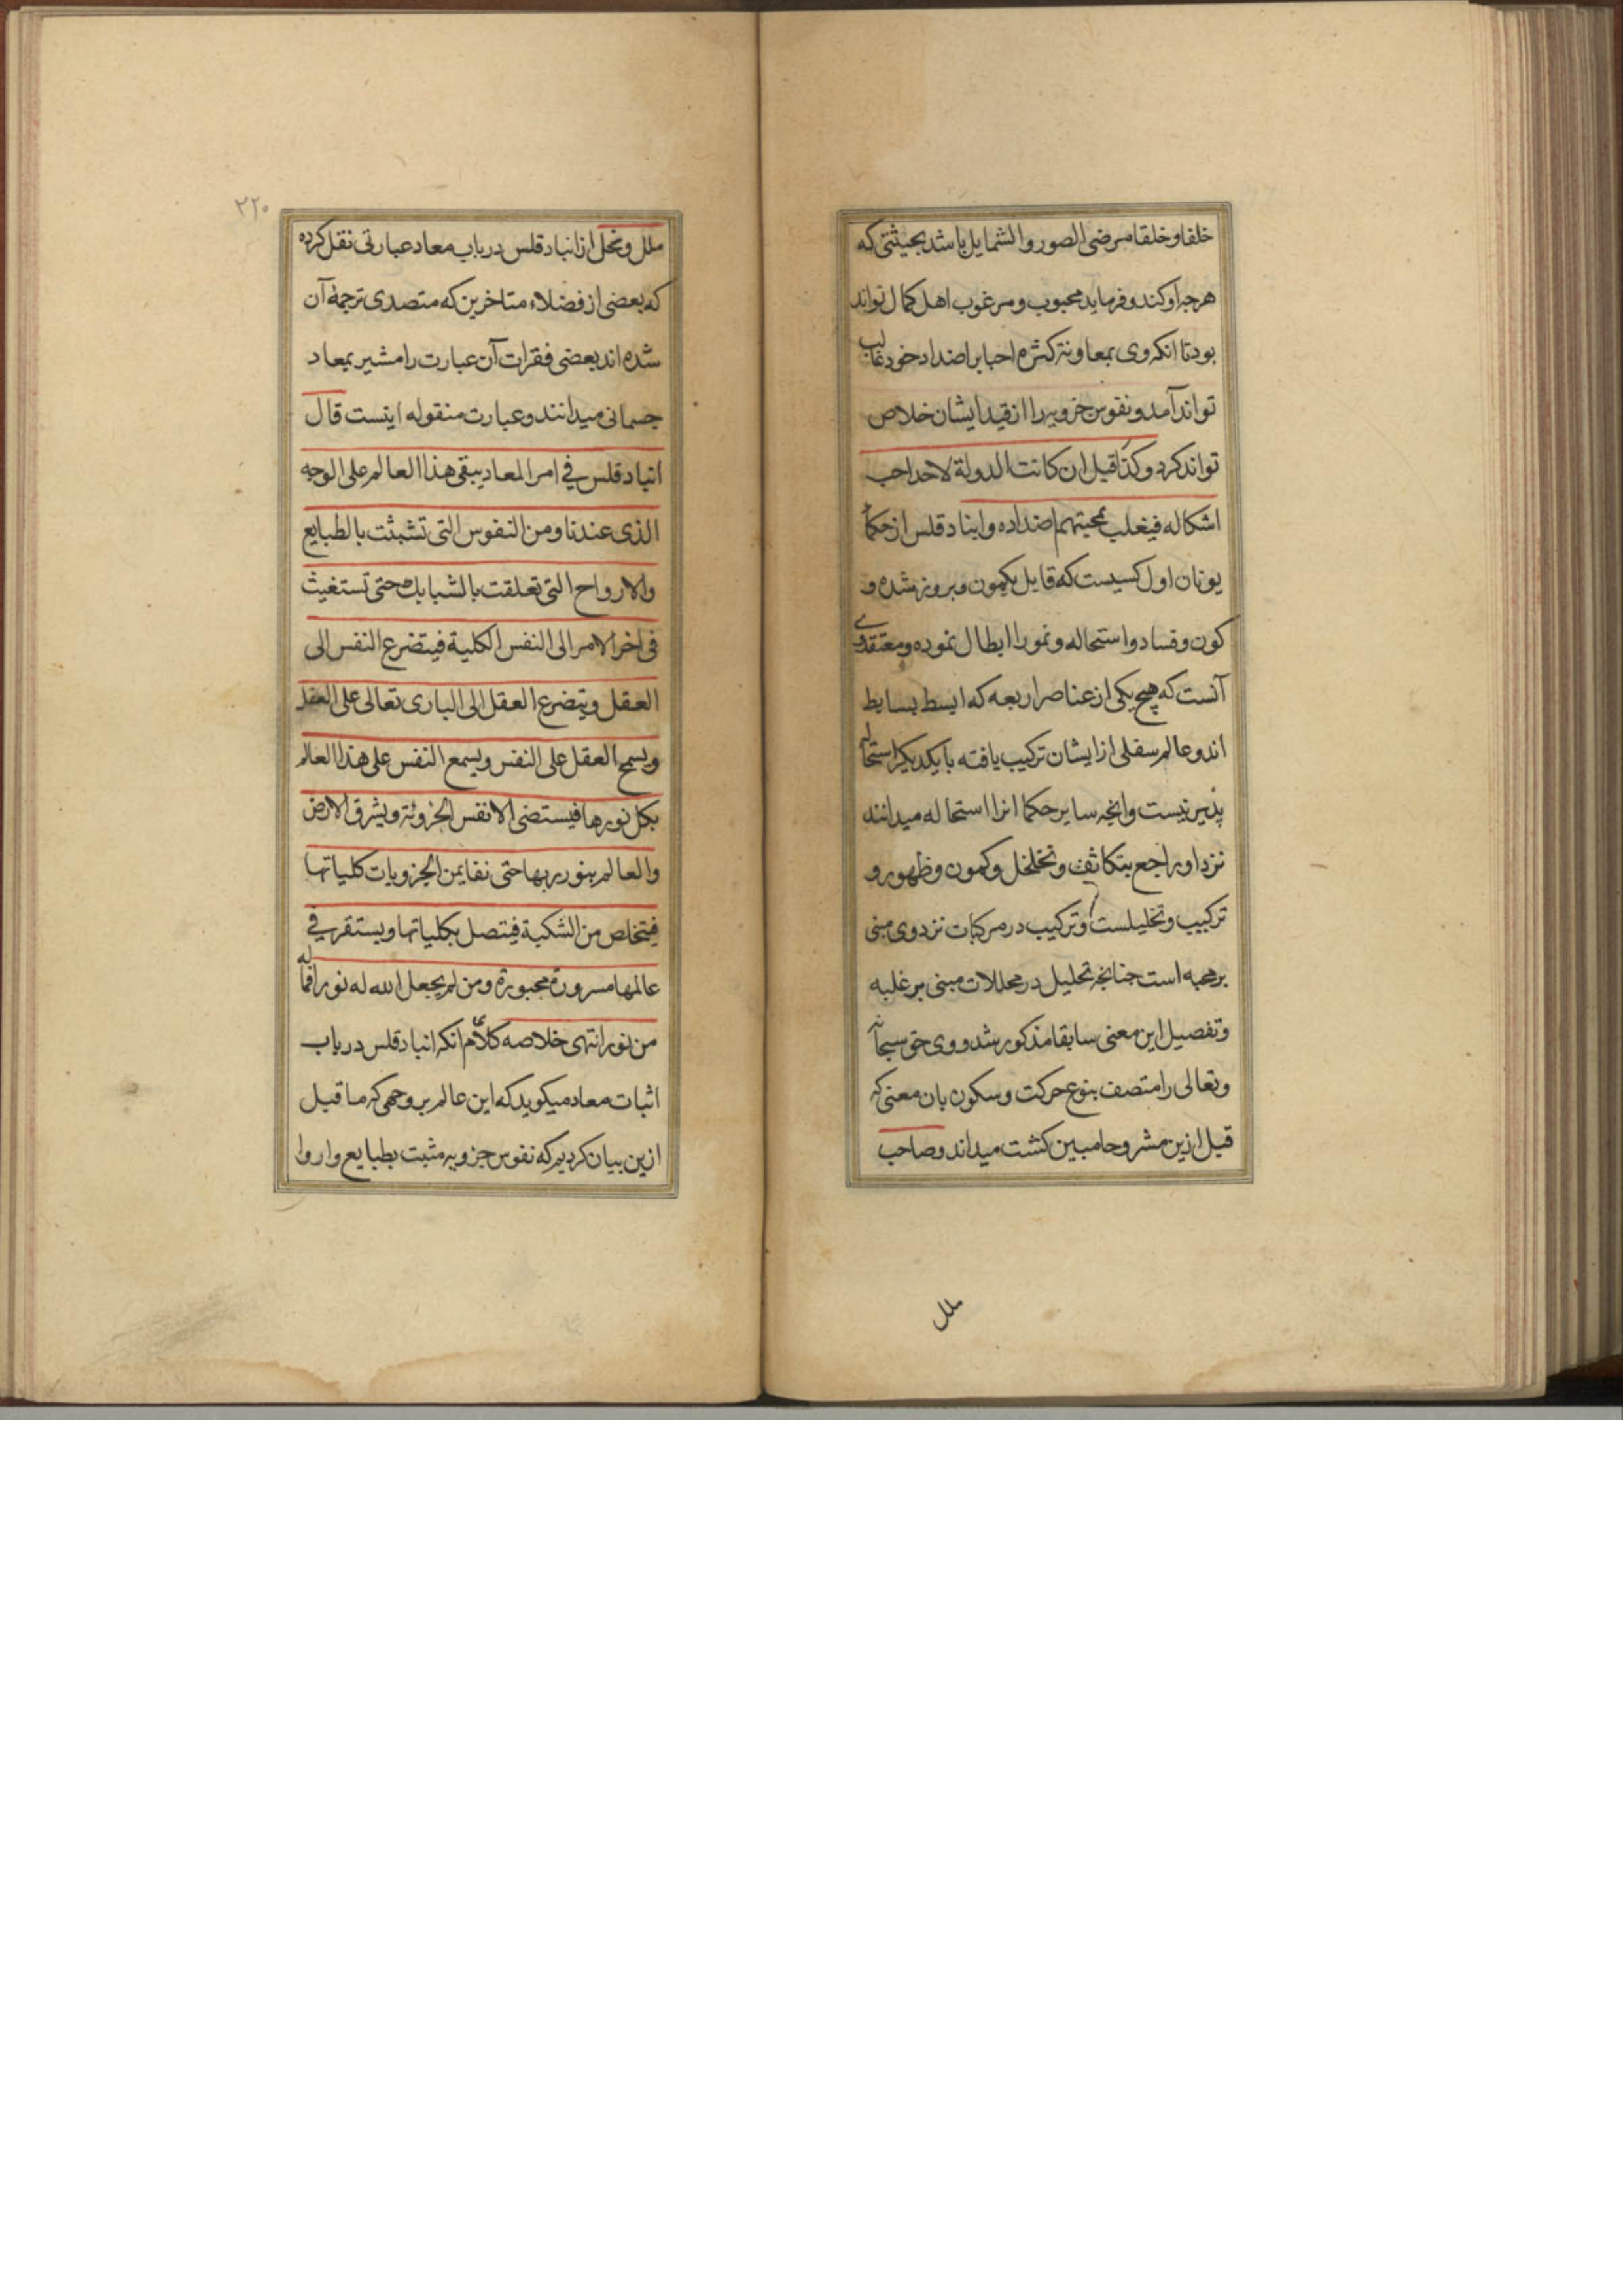 خلقا و خلقا مرضی الصور و الشمایل باشد بحیثیتی که
هرچه او کند و فرماید محبوب و مرغوب اهل کمال تواند
بود تا انکه وی بمعاونة کثرة احبا بر اضداد خود غالب
تواند آمد و نفوس جزویه را از قید ایشان خلاص
تواند کرد و کذا قیل ان کانت الدولة لاحد احب
اشکاله فیغلب بمحبتهم اضداده و ابنادقلس از حکماء
یونان اول کسیست که قایل بکمون و بروز شده و
کون و فساد و استحاله و نمو را ابطال نموده و معتقدی
آنست که هیچ یکی از عناصر اربعه که ابسط بسایط
اند و عالم سفلی از ایشان ترکیب یافته بایکدیگر استحاله
پذیر نیست و انچه سایر حکما انرا استحاله میدانند
نزد او راجع بتکاثف و تخلخل و کمون و ظهور و
ترکیب و تحلیلست و ترکیب در مرکبات نزد وی مبنی
بر محبه است جنانچه تحلیل در محللات مبنی بر غلبه
و تفصیل این معنی سابقا مذکور شد و وی حق سبحانه
و تعالی را متصف بنوع حرکت و سکون بان معنی که
قبل ازین مشروحا مبین کشت میداند و صاحب
ملل
۲۲۰
ملل و نحل از انبادقلس در باب معاد عبارتی نقل کرده
که بعضی از فضلاء متاخرین که متصدی ترجمهٔ آن
شده اند بعضی فقرات آن عبارت را مشیر بمعاد
جسمانی میدانند و عبارت منقوله اینست قال
انبادقلس فی امر المعاد یبقی هذا العالم علی الوجه
الذی عندنا و من النفوس التی تشبثت بالطبایع
والارواح التی تعلقت بالشبابک حتی تستغیث
فی اخر الامر الی النفس الکلیة فیتضرع النفس الی
العقل و یتضرع العقل الی الباری تعالی علی العقل
و یسح العقل علی النفس و یسمع النفس علی هذا العالم
بکل نورها فیستضی الانفس الجزوئة و یشرق الارض
والعالم بنور ربها حتی نقایمن الجزویات کلیاتها
فیتخلص من الشکبة فیتصل بکلیاتها و یستقر فی
عالمها مسرورة محبورة و من لم یجعل الله له نورا فما له
من نور انتهی خلاصه کلام انکه انبادقلس در باب
اثبات معاد میکوید که این عالم بر وجهی که ما قبل
ازین بیان کردیم که نفوس جزویه مثبت بطبایع و اروا